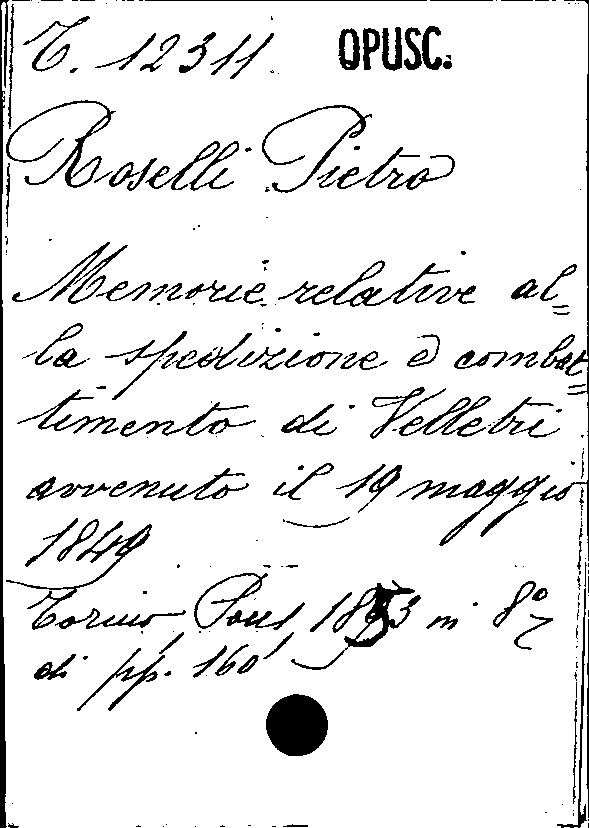 T. 12311 OPUSC.
Roselli Pietro
Memorie relative al=
la spedizione e combat=
timento di Velletri
avvenuto il 19 maggio
1849
Torino Pons 1853 in 8°
di pp. 160